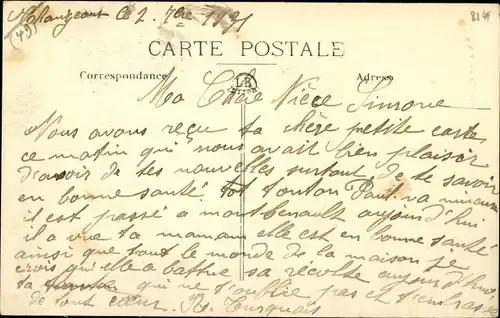 le 2. 1931
CARTE POSTALE
Correspondance
LR
Adresse
Ma Chère Nièce Simone
Nous avons reçu ta chère petite carte
ce matin qui nous avait bien plaisir
d'avoir de tes nouvelles surtout de te savoir
en bonne santé. tonton Paul va mieux
il est passé a aujourd'hui
il a vue ta maman elle est en bonne santé
ainsi que tout le monde de la maison je
crois qu'elle a battue sa récolte aujourd'hui
ta qui ne t'oublie pas et t'embrasse
de tout cœur.